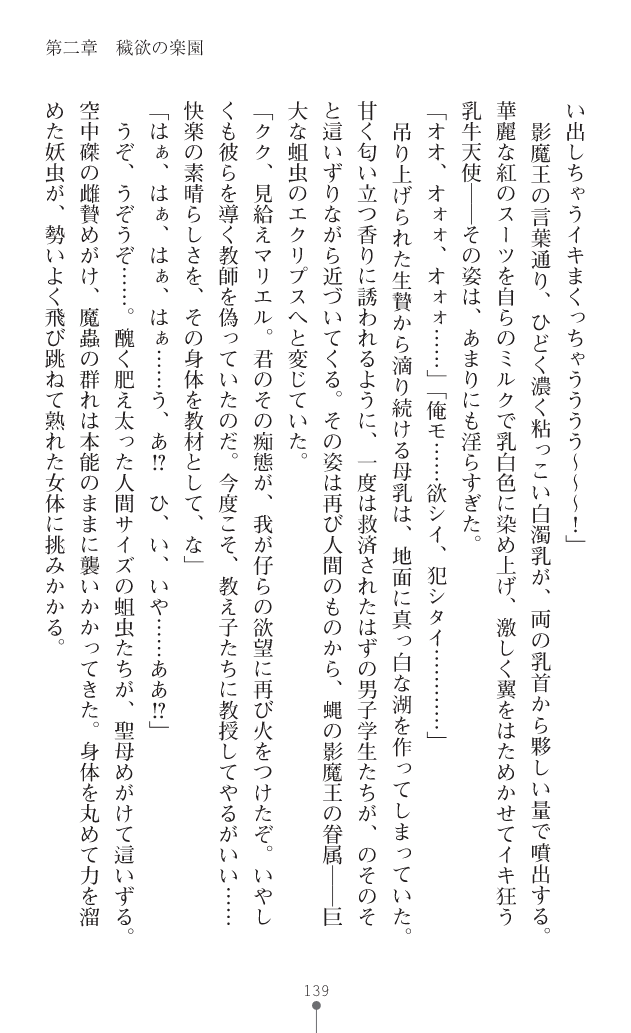 第二章　穢欲の楽園
い出しちゃうイキまくっちゃうううう〜〜〜！」
　影魔王の言葉通り、ひどく濃く粘っこい白濁乳が、両の乳首から夥しい量で噴出する。
華麗な紅のスーツを自らのミルクで乳白色に染め上げ、激しく翼をはためかせてイキ狂う
乳牛天使――その姿は、あまりにも淫らすぎた。
「オオ、オォォ、オォォ……」「俺モ……欲シイ、犯シタイ…………」
　吊り上げられた生贄から滴り続ける母乳は、地面に真っ白な湖を作ってしまっていた。
甘く匂い立つ香りに誘われるように、一度は救済されたはずの男子学生たちが、のそのそ
と這いずりながら近づいてくる。その姿は再び人間のものから、蝿の影魔王の眷属――巨
大な蛆虫のエクリプスへと変じていた。
「クク、見給えマリエル。君のその痴態が、我が仔らの欲望に再び火をつけたぞ。いやし
くも彼らを導く教師を偽っていたのだ。今度こそ、教え子たちに教授してやるがいい……
快楽の素晴らしさを、その身体を教材として、な」
「はぁ、はぁ、はぁ、はぁ……う、あ!?　ひ、い、いや……ああ!?」
　うぞ、うぞうぞ……。醜く肥え太った人間サイズの蛆虫たちが、聖母めがけて這いずる。
空中磔の雌贄めがけ、魔蟲の群れは本能のままに襲いかかってきた。身体を丸めて力を溜
めた妖虫が、勢いよく飛び跳ねて熟れた女体に挑みかかる。
139